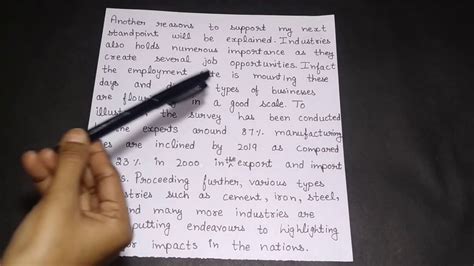 Another reasons to support my next
standpoint will be explained. Industries
also holds numerous importance as they
create several job opportunities. Infact
the employment is mounting these
days and types of businesses
are in a good scale. To
the survey has been conducted
the experts around 87% manufacturing
are inclined by 2019 as compared
23% in 2000 in the export and import
Proceeding further, various types
such as cement, iron, steel,
many more industries are
putting endeavours to highlighting
impacts in the nations.